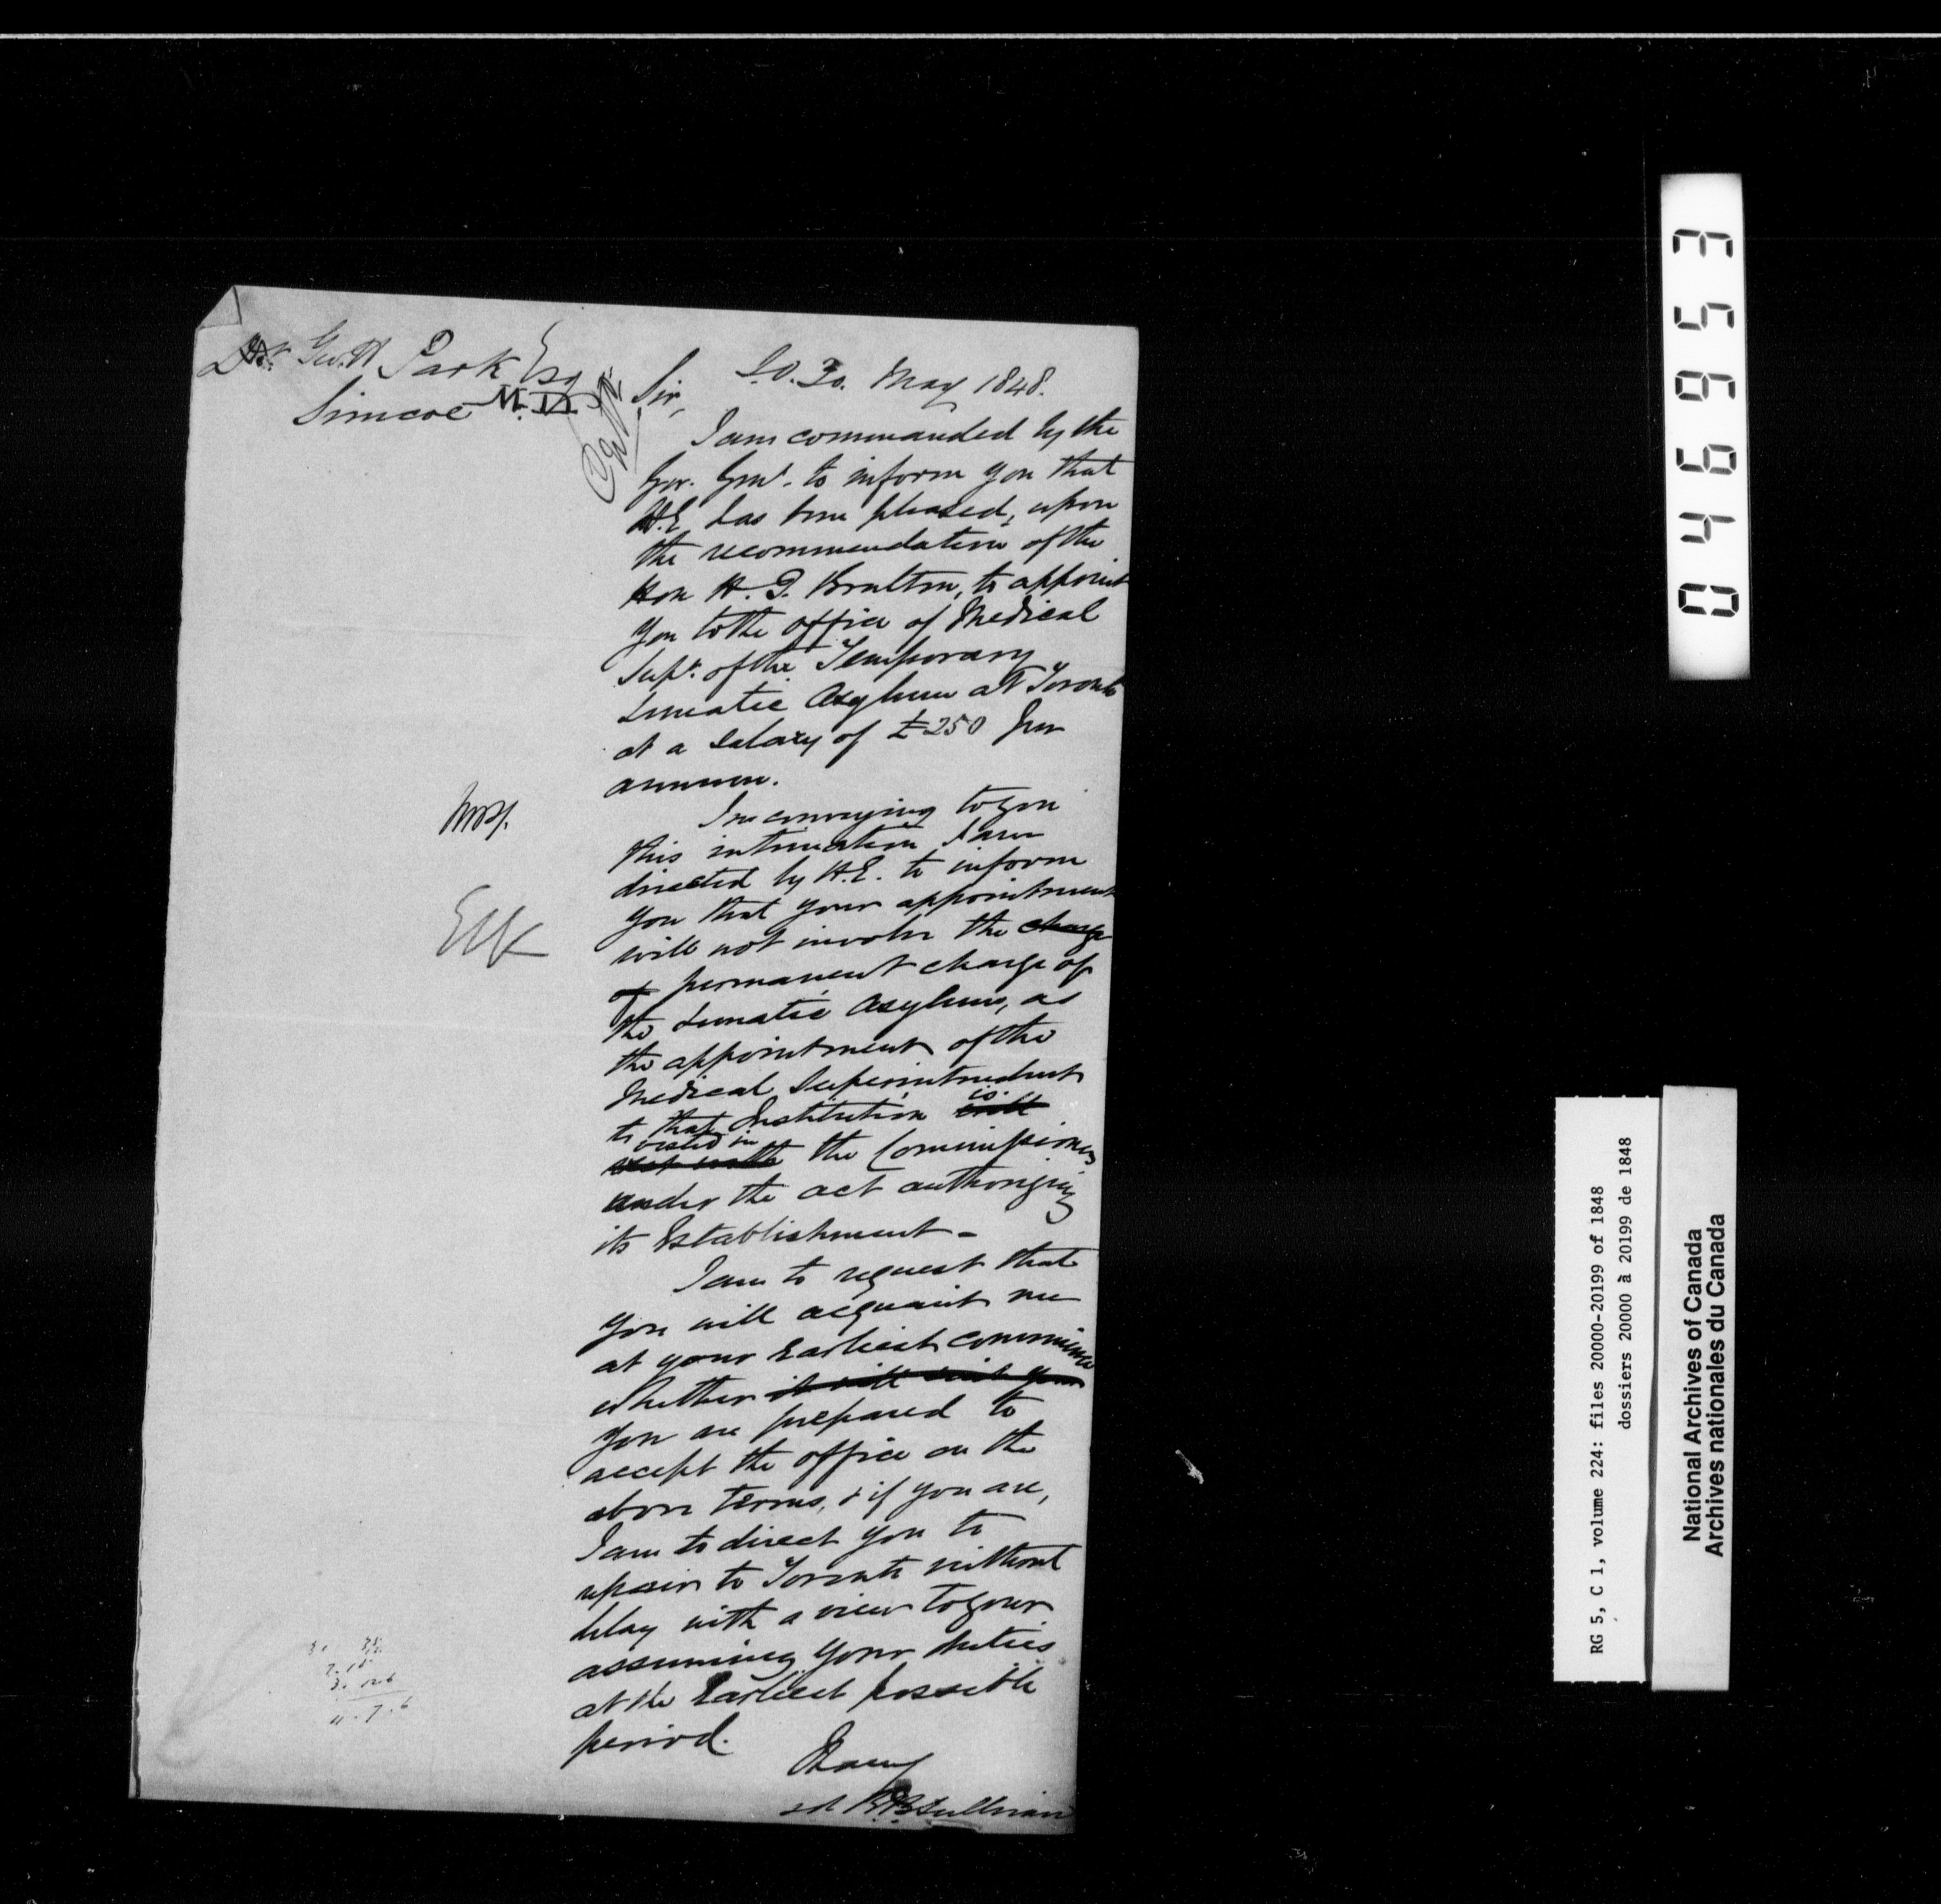 Dr. Geo. H Park Esq
Simcoe M.D.
S.O. 30. May 1848.
Sir,
I am commanded by the
Gov. Genl. to inform you that
H.E. has been pleased, upon
the recommendation of the
Hon H. J. Boulton, to appoint
you to the office of Medical
Supt. of the Temporary
Lunatic Asylum at Toronto
at a salary of £250 per
annum.
In conveying to you
this intimation I am
directed by H.E. to inform
you that your appointment
will not involve the charge
of permanent charge of
the Lunatic Asylum, as
the appointment of the
Medical Superintendent
to that Institution is
vested in the Commissioners
under the act authorizing
its Establishment -
I am to request that
you will acquaint me
at your Earliest convenience
whether it will suit your
you are prepared to
accept the office on the
above terms, & if you are,
I am to direct you to
repair to Toronto without
delay with a view to your
assuming your duties
at the Earliest possible
period.
I have
sd R B Sullivan
11 . 7 . 6
046953
RG 5, C 1, volume 224: files 20000-20199 of 1848
dossiers 20000 à 20199 de 1848
National Archives of Canada
Archives nationales du Canada